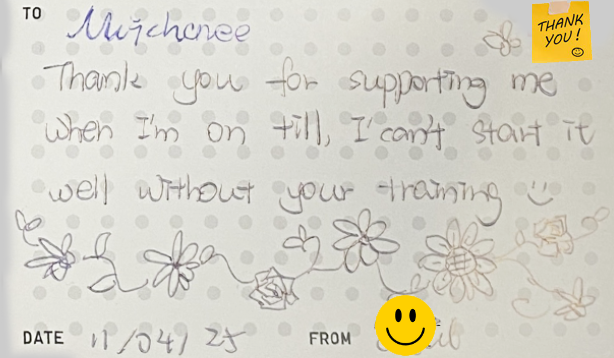 TO Mujchanee
THANK YOU!
Thank you for supporting me
when I'm on till, I can't start it
well without your training
DATE 11/04/25 FROM